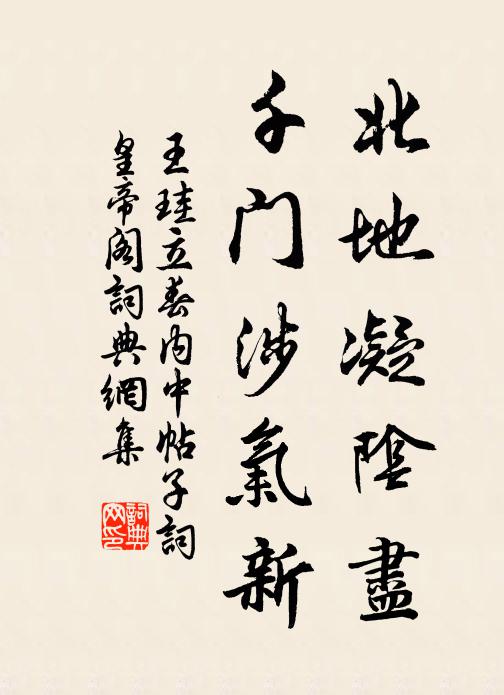 北地凝陰盡
千門涉氣新
王珪立春內中帖子詞
皇帝閣詞典網集
詞典网印